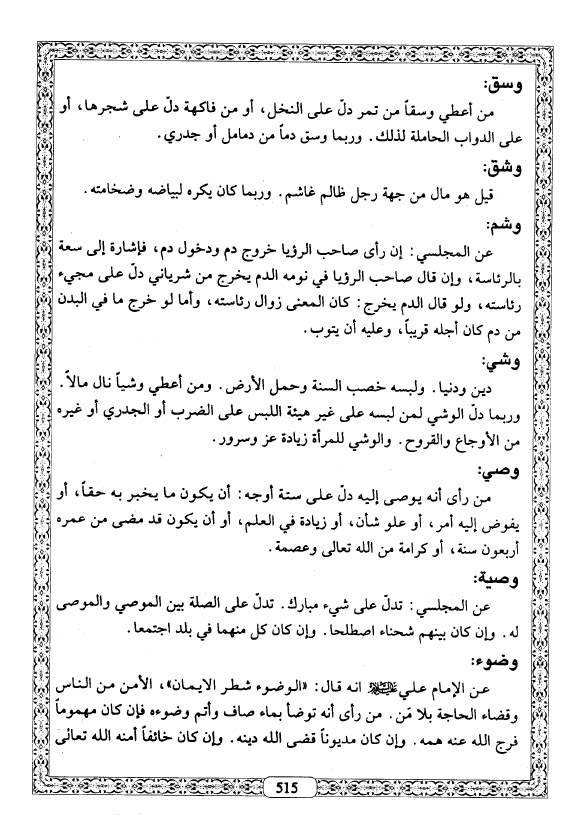 وسق:
من أعطي وسقاً من تمر دلّ على النخل، أو من فاكهة دلّ على شجرها، أو
على الدواب الحاملة لذلك. وربما وسق دماً من دمامل أو جدري.
وشق:
قيل هو مال من جهة رجل ظالم غاشم. وربما كان يكره لبياضه وضخامته.
وشم:
عن المجلسي: إن رأى صاحب الرؤيا خروج دم ودخول دم، فإشارة إلى سعة
بالرئاسة، وإن قال صاحب الرؤيا في نومه الدم يخرج من شرياني دلّ على مجيء
رئاسته، ولو قال الدم يخرج: كان المعنى زوال رئاسته، وأما لو خرج ما في البدن
من دم كان أجله قريباً، وعليه أن يتوب.
وشي:
دين ودنيا. ولبسه خصب السنة وحمل الأرض. ومن أعطي وشياً نال مالاً.
وربما دلّ الوشي لمن لبسه على غير هيئة اللبس على الضرب أو الجدري أو غيره
من الأوجاع والقروح. والوشي للمرأة زيادة عز وسرور.
وصي:
من رأى أنه يوصى إليه دلّ على ستة أوجه: أن يكون ما يخبر به حقاً، أو
يفوض إليه أمر، أو علو شأن، أو زيادة في العلم، أو أن يكون قد مضى من عمره
أربعون سنة، أو كرامة من الله تعالى وعصمة.
وصية:
عن المجلسي: تدلّ على شيء مبارك. تدلّ على الصلة بين الموصي والموصى
له. وإن كان بينهم شحناء اصطلحا. وإن كان كل منهما في بلد اجتمعا.
وضوء:
عن الإمام علي انه قال: «الوضوء شطر الايمان»، الأمن من الناس
وقضاء الحاجة بلا مَن. من رأى أنه توضأ بماء صاف وأتم وضوءه فإن كان مهموماً
فرج الله عنه همه. وإن كان مديوناً قضى الله دينه. وإن كان خائفاً أمنه الله تعالى
515